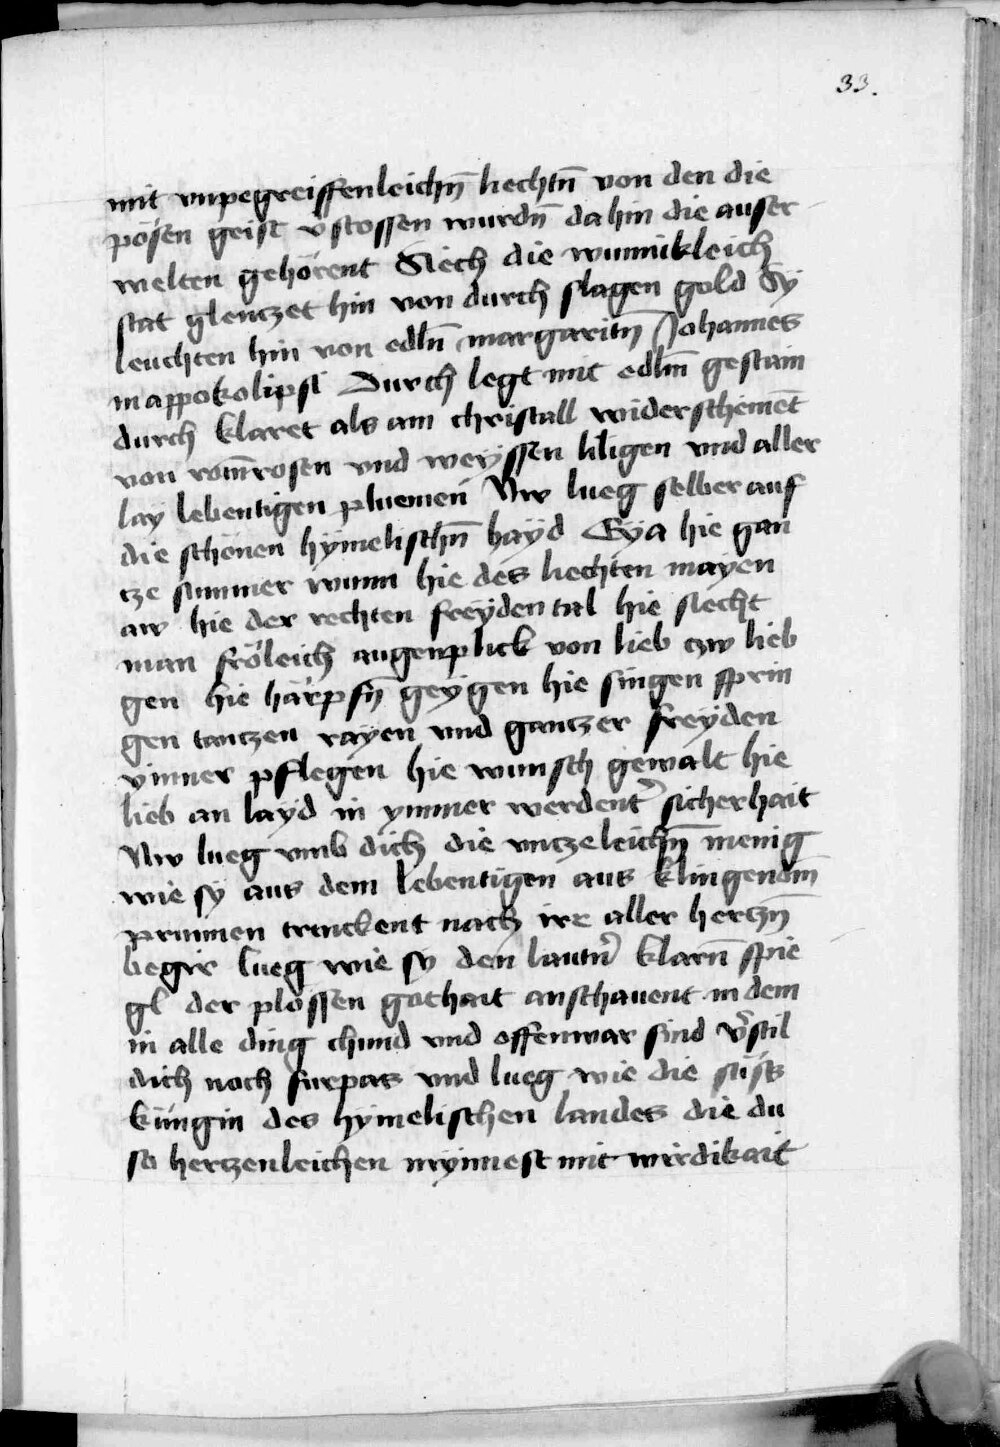 33.
mit vnpegreiffenleichn̄ liechtn̄ von den die
pösen geist v̄stossen wurdn̄ dahin die auser
welten gehörent Siech die wunnikleich
stat glenczet hin von durch slagen gold Sy
leuchten hin von edln̄ margaritn̄ Johannes
in appokolipsi Durch legt mit edlm̄ gestain
durch klaret als am christall widerschement̄
von rom̄rosen vnd weyssen liligen vnd aller
lay lebentigen pluemen Nw lueg selber auf
die schönen hÿmelischn̄ haÿd Eya hie gan
cze summer wunn hie des liechten mayen
aw hie der rechten freÿden tal hie siecht
man fröleich augenplick von lieb czw lieb
gen hie härpfn̄ geÿgen hie singen sprin
gen tanczen raÿen vnd ganczer freÿden
ÿmmer pflegen hie wunsch gewalt hie
lieb an layd in ymmer werdent̾ sicherhait
Nw lueg vmb dich die vnczeleichn̄ menig
wie sy aus dem lebentigen aus klingendm̄
prunnen trinckent nach irr aller herczn̄
begir lueg wie sy den lautn̾ klarn̄ spie
gl der plossen gothait anschauent in dem
in alle ding chund vnd offenwar sind v̾stil
dich noch fürpas vnd lueg wie die süss
küngin des hÿmelischen landes die du
so herczenleichen mÿnnest mit wirdikait